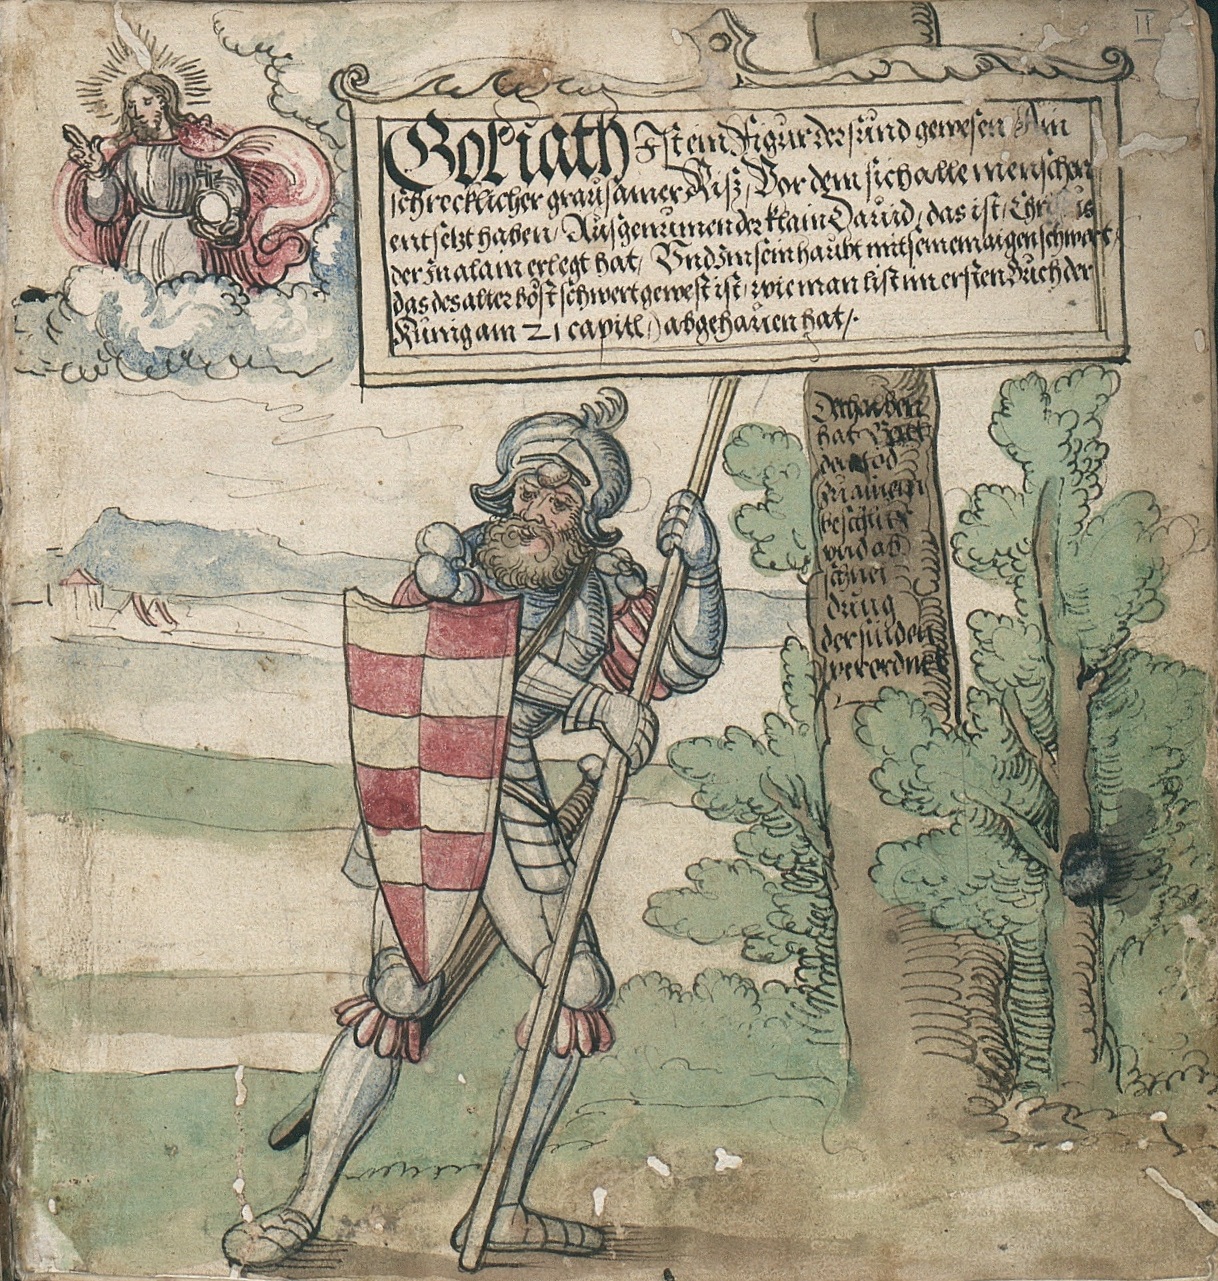 II
Goliath Ist ein Figur der sünd gewesen Ain
schrecklicher grausamer Riß / Vor dem sich alle menschen
entsetzt haben / Ausgenumen der klain Dauid / das ist /
der In alain erlegt hat / Und Im sein haubt mit seinem aigen schwert /
das des alter böst schwert gewest ist / wie man list im ersten Buch der
Künig am 21 capitl /) abgehauen hat /.
Derhalben
hat Gott
den tod
zu ainem
beschlus
und ab
schnei
dung
der sünden
verordnet